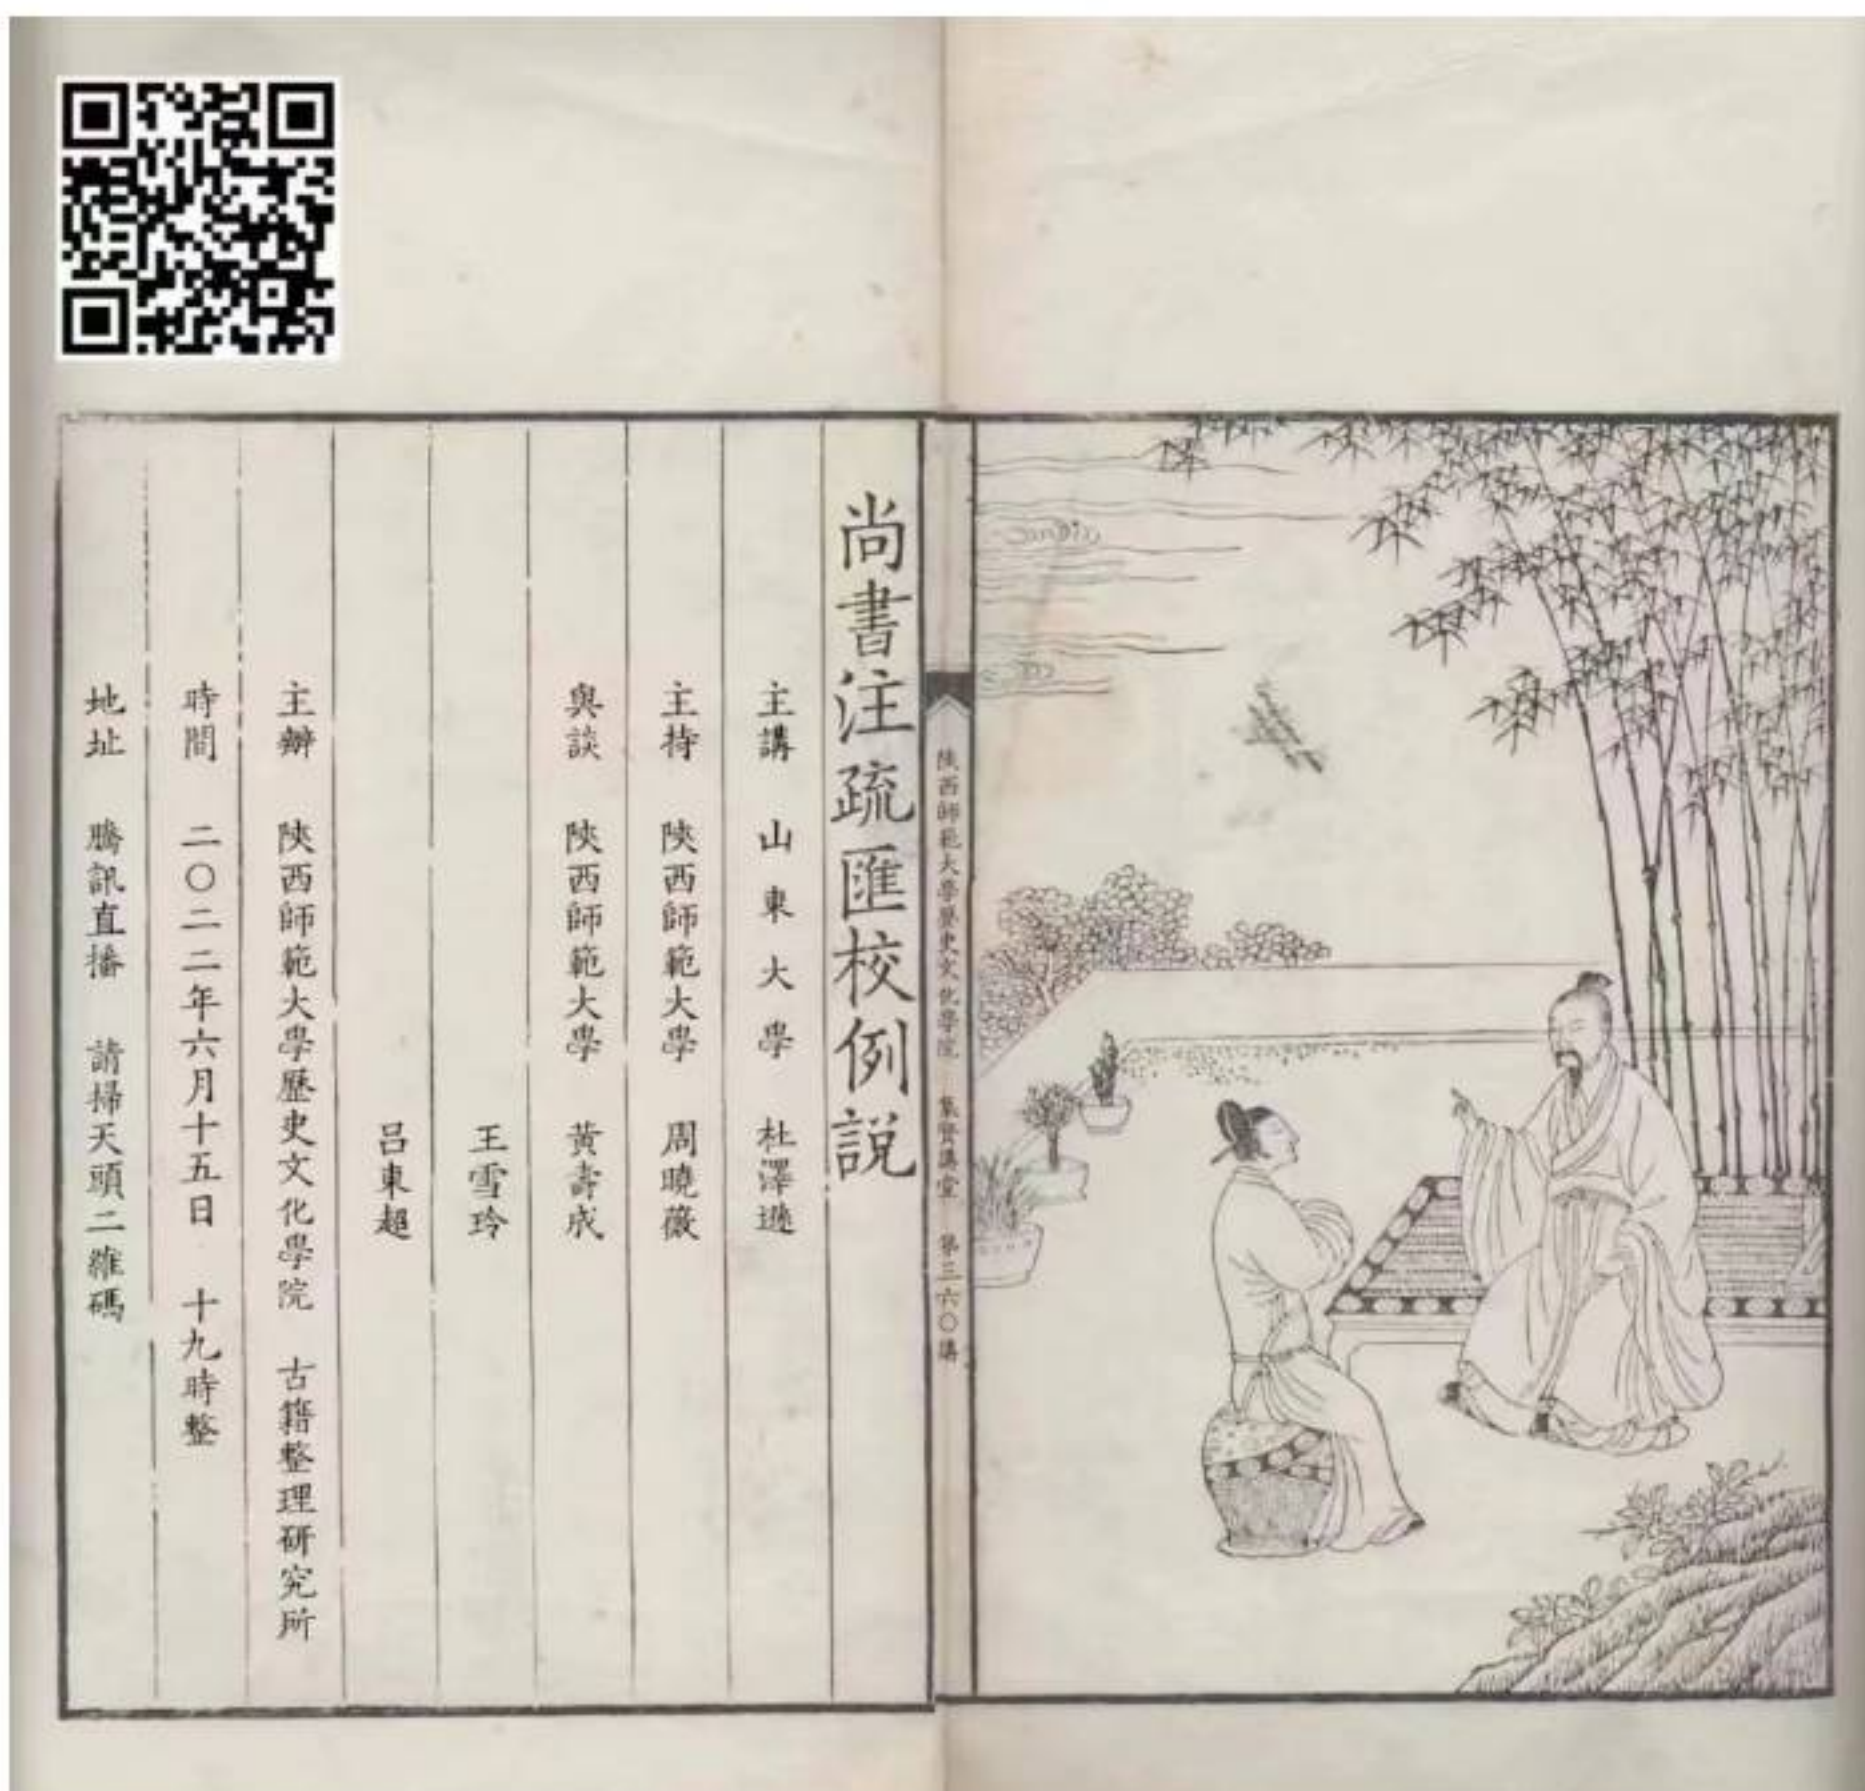 陝西師範大學歷史文化學院 集賢講堂 第三六〇講
尚書注疏匯校例説
主講 山東大學 杜澤遜
主持 陝西師範大學 周曉薇
與談 陝西師範大學 黃壽成
王雪玲
呂東超
主辦 陝西師範大學歷史文化學院 古籍整理研究所
時間 二〇二二年六月十五日 十九時整
地址 騰訊直播 請掃天頭二維碼